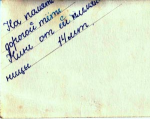 На памят
дорогой тёти
Нине от её племян
ницы 14 лет.